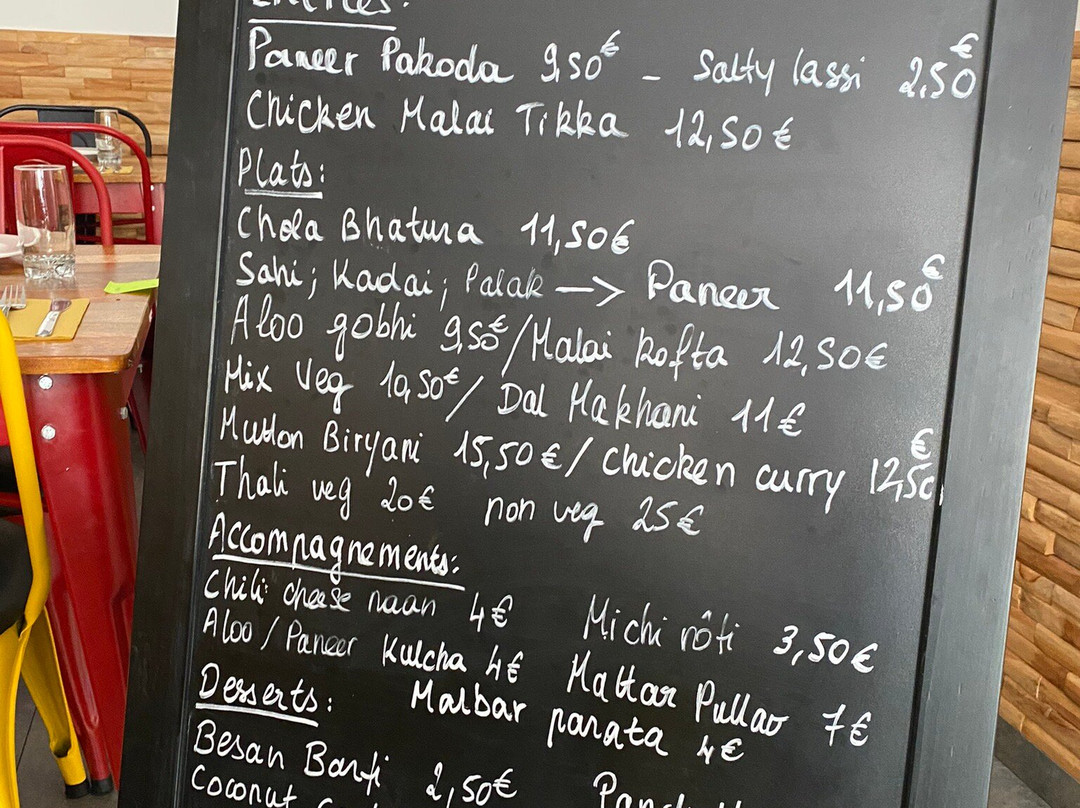 Entrées:
Paneer Pakoda 9,50€ - Salty lassi 2,50€
Chicken Malai Tikka 12,50€
Plats:
Chola Bhatura 11,50€
Sahi; Kadai; Palak -> Paneer 11,50€
Aloo gobhi 9,50€/Malai kofta 12,50€
Mix Veg 10,50€/ Dal Makhani 11€
Mutton Biryani 15,50€/ chicken curry 12,50€
Thali veg 20€ non veg 25€
Accompagnements:
Chili cheese naan 4€ Michi rôti 3,50€
Aloo / Paneer Kulcha 4€ Mattar Pullao 7€
Malbar parata 4€
Desserts:
Besan Barfi 2,50€
Coconut